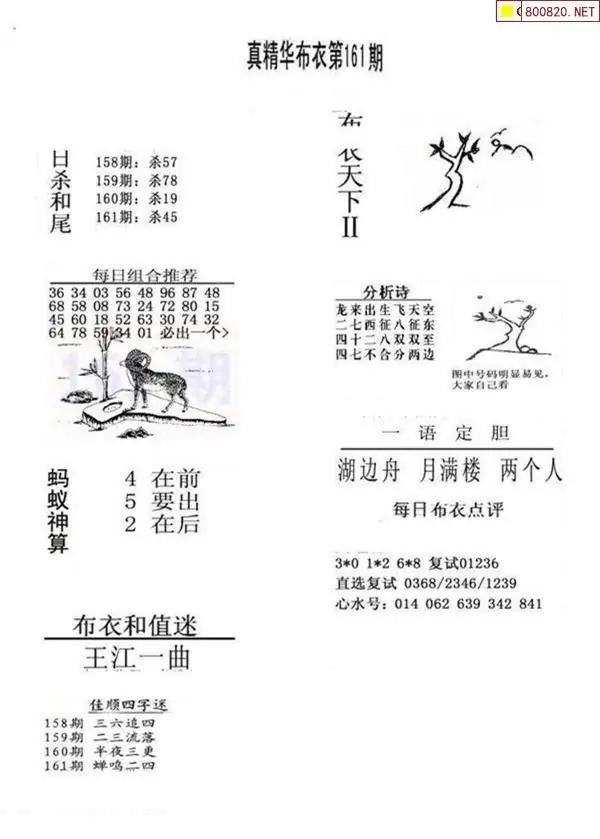 800820.NET
真精华布衣第161期
日杀和尾
158期：杀57
159期：杀78
160期：杀19
161期：杀45
布衣天下II
每日组合推荐
36 34 03 56 48 96 87 48
68 58 08 73 24 72 80 15
45 60 18 52 63 30 74 32
64 78 59 34 01 必出一个>
分析诗
龙来出生飞天空
二七西征八征东
四十二八双双至
四七不合分两边
图中号码明显易见。
大家自己看
蚂蚁神算
4 在前
5 要出
2 在后
一语定胆
湖边舟 月满楼 两个人
每日布衣点评
3*0 1*2 6*8 复试01236
直选复试 0368/2346/1239
心水号：014 062 639 342 841
布衣和值迷
王江一曲
佳顺四字迷
158期 三六追四
159期 二三流落
160期 半夜三更
161期 蝉鸣二四